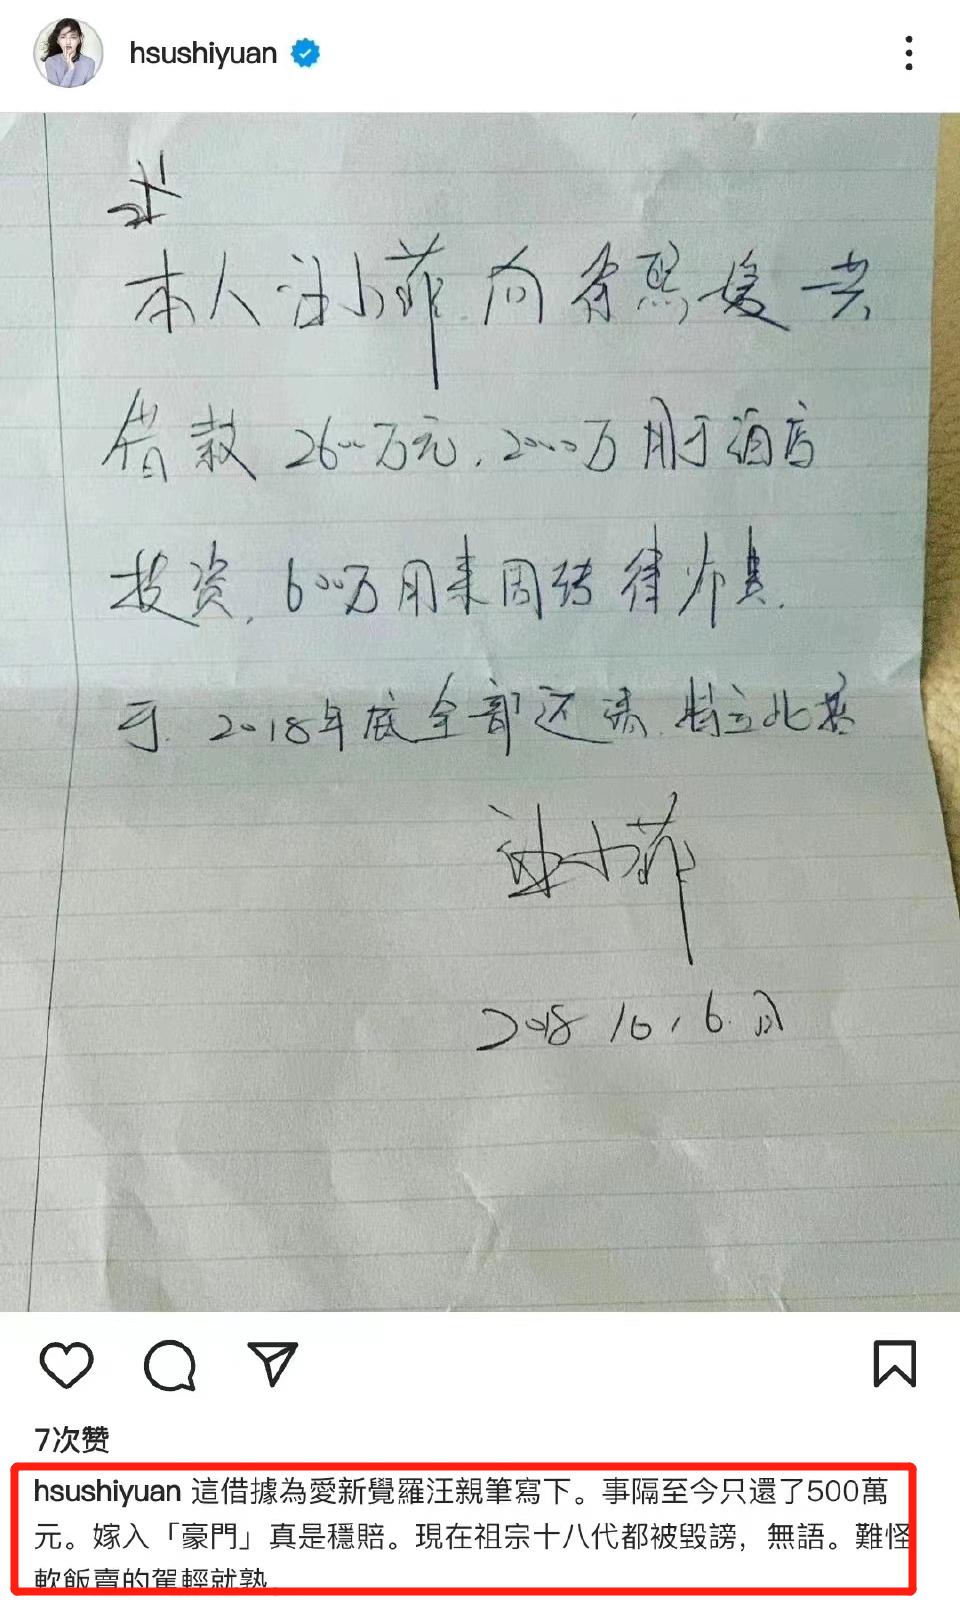 hsushiyuan
本人汪小菲向徐熙媛共
借款2600万元,2000万用于酒店
投资,600万用来周转律师费.
于.2018年底全部还清.特立此据
汪小菲
2018 10,6.
7次赞
hsushiyuan 這借據為愛新覺羅汪親筆寫下。事隔至今只還了500萬
元。嫁入「豪門」真是穩賠。現在祖宗十八代都被毀謗，無語。難怪
軟飯賣的駕輕就熟